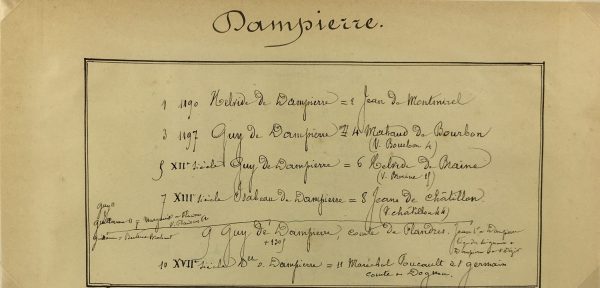 Dampierre.
1 1190 Helvide de Dampierre = 2 Jean de Montmirel
3 1197 Guy de Dampierre = 4 Mahaud de Bourbon
(V. Bourbon 4)
5 XIIe siècle Guy de Dampierre = 6 Helvide de Braine
(V. Braine
7 XIIIe siècle Isabeau de Dampierre = 8 Jean de Châtillon.
(V châtillon
9 Guy de Dampierre, comte de Flandres.
10 XVIIe siècle de Dampierre = 11 Maréchal Foucault St germain
comte Dognon.